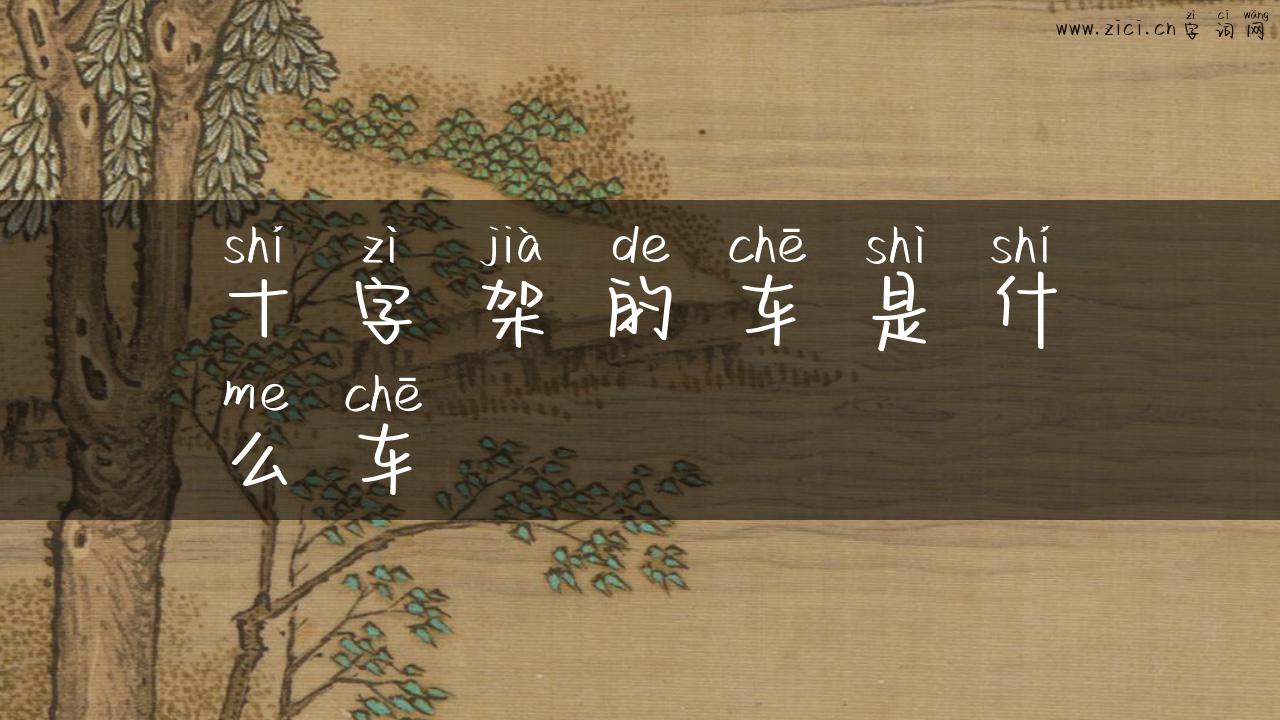 zì cí wǎng
www.zici.cn 字词网
shí zì jià de chē shì shí
十字架的车是什
me chē
么车